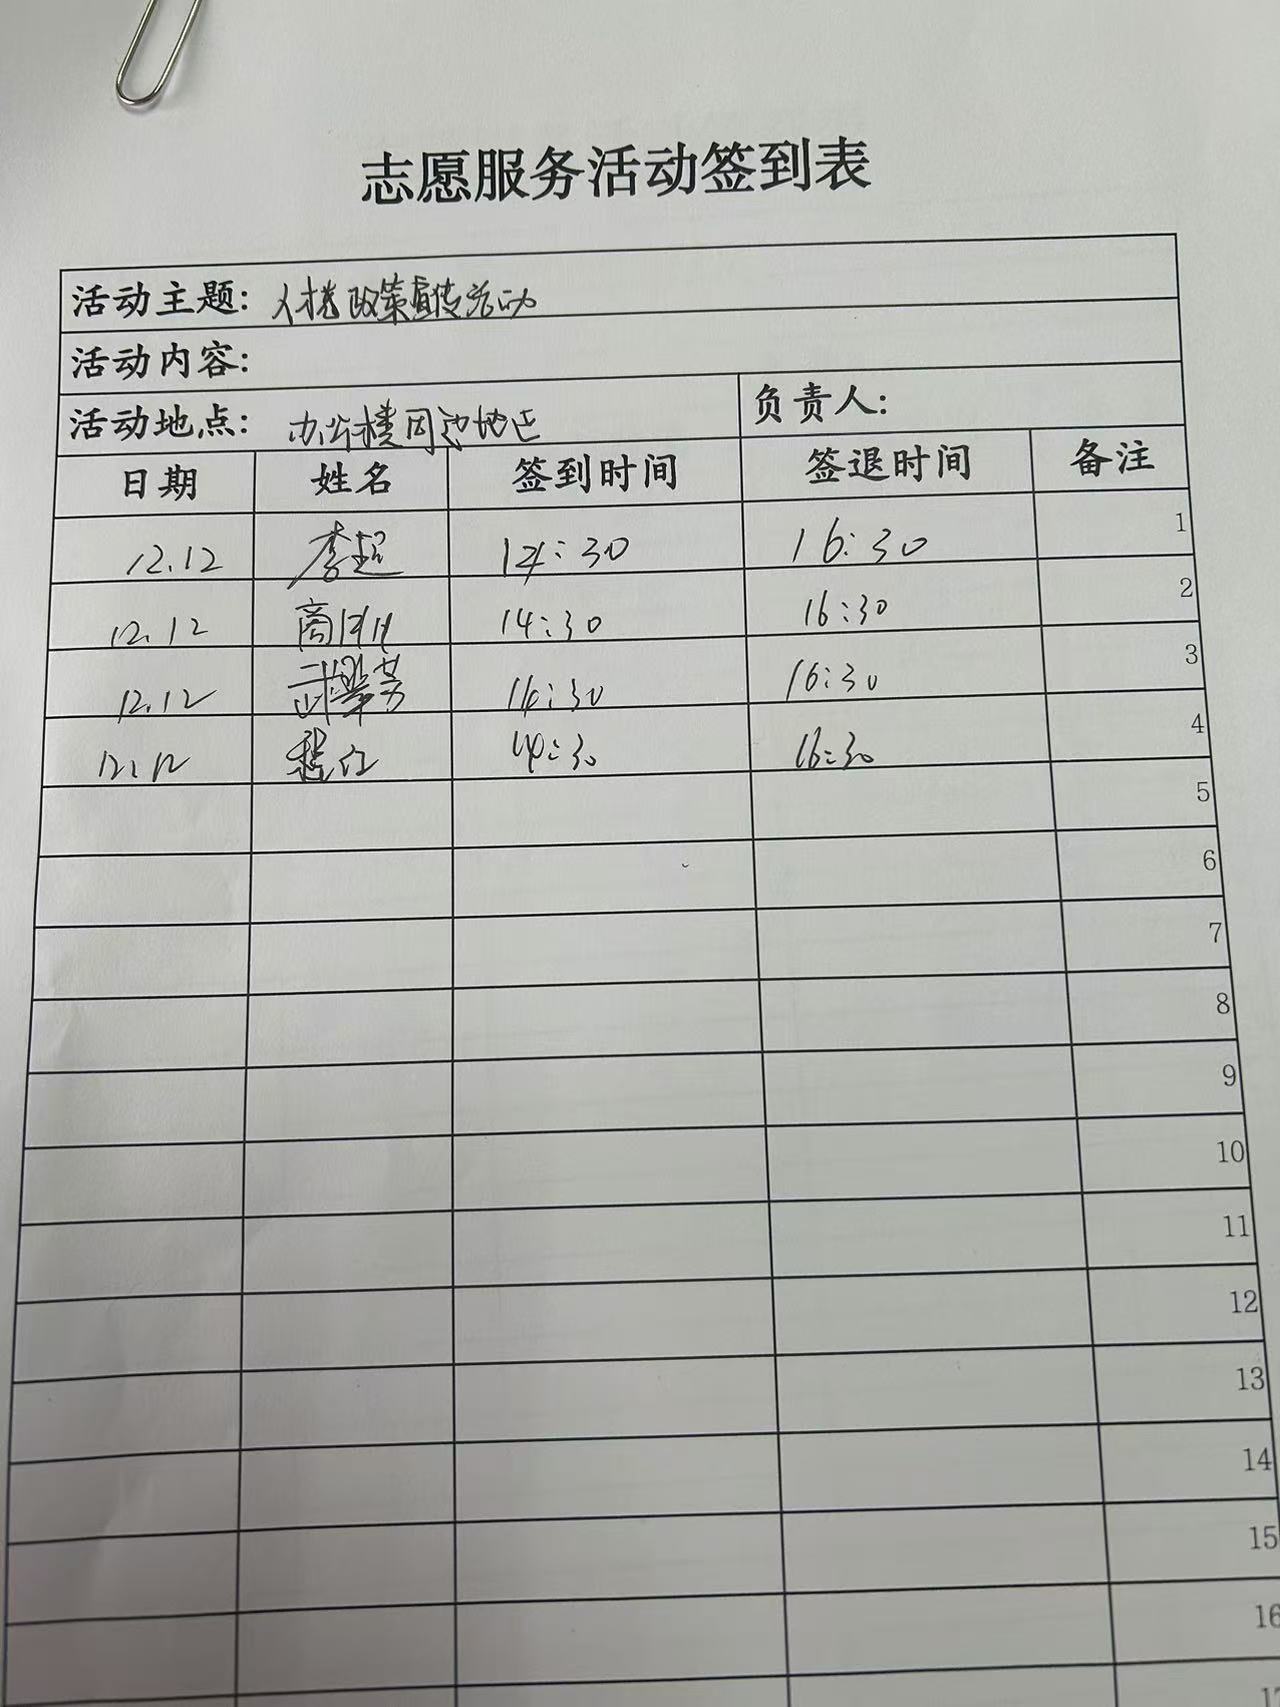 志愿服务活动签到表
活动主题: 人才政策宣传活动
活动内容:
活动地点: 办公楼周边地区 负责人:
日期 姓名 签到时间 签退时间 备注
12.12 李超 14:30 16:30 1
12.12 商 14:30 16:30 2
12.12 武翠芳 14:30 16:30 3
12.12 14:30 16:30 4
5
6
7
8
9
10
11
12
13
14
15
16